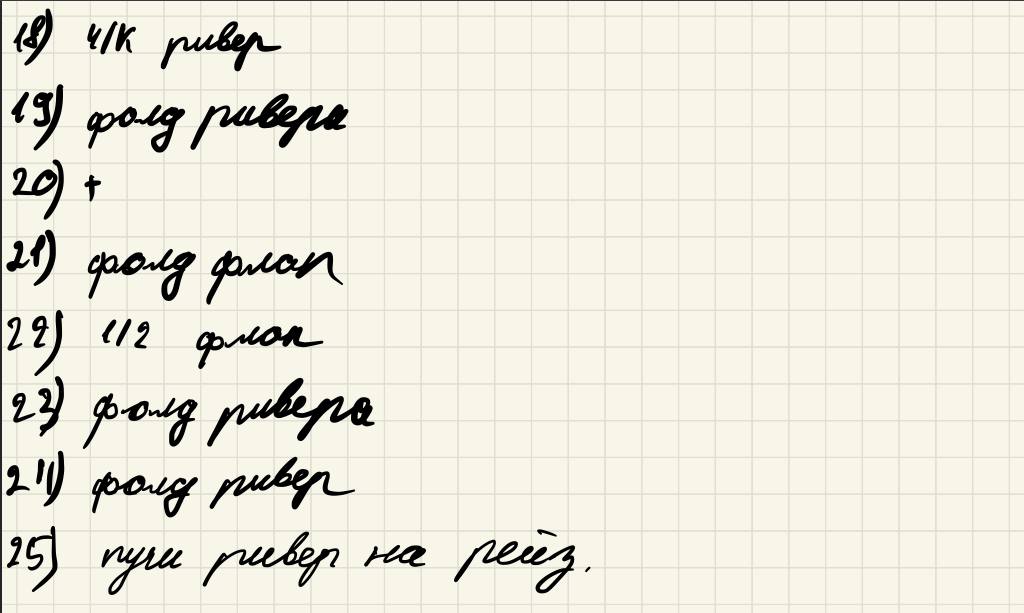 18) ч/к ривер
19) фолд ривера
20) +
21) фолд флоп
22) 1/2 флоп
23) фолд ривера
24) фолд ривер
25) пуш ривер на рейз.